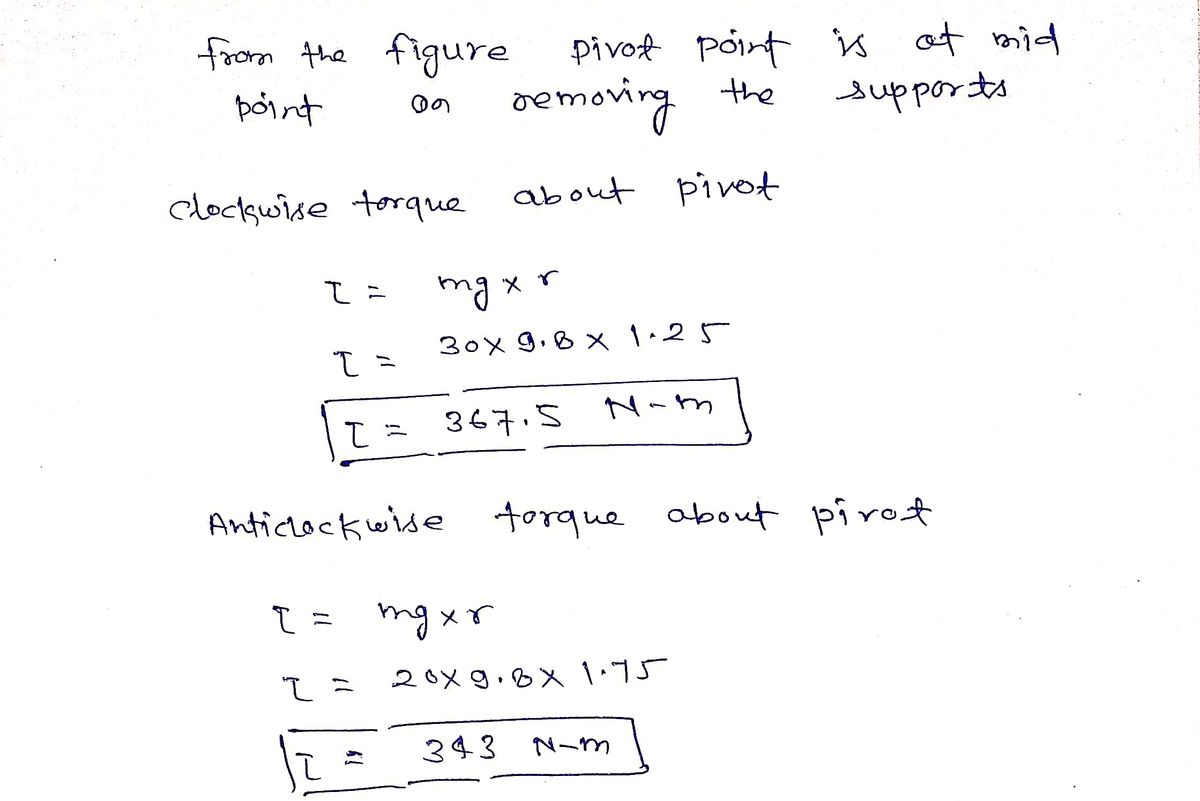 from the figure pivot point is at mid
point on removing the supports
clockwise torque about pivot
τ = mg × r
τ = 30 × 9.8 × 1.25
τ = 367.5 N-m
Anticlockwise torque about pivot
τ = mg × r
τ = 20 × 9.8 × 1.75
τ = 343 N-m